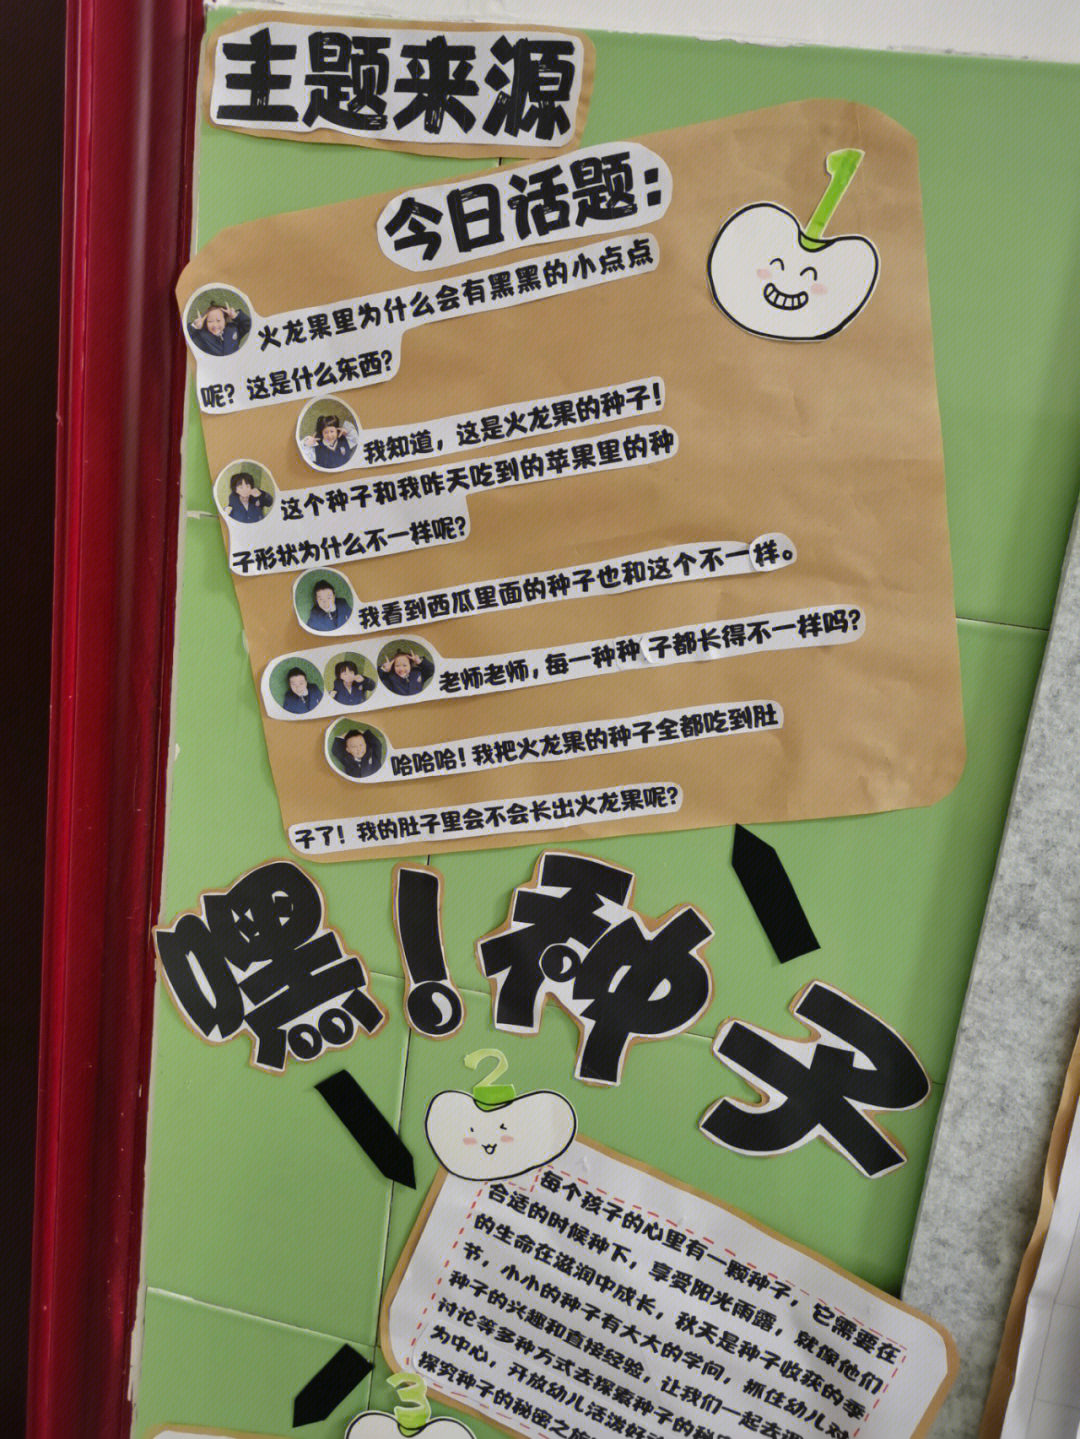 主题来源
今日话题：
1
火龙果里为什么会有黑黑的小点点
呢？这是什么东西？
我知道，这是火龙果的种子！
这个种子和我昨天吃到的苹果里的种
子形状为什么不一样呢？
我看到西瓜里面的种子也和这个不一样。
老师老师，每一种种子都长得不一样吗？
哈哈哈！我把火龙果的种子全都吃到肚
子了！我的肚子里会不会长出火龙果呢？
嘿！种子
2
每个孩子的心里有一颗种子，它需要在
合适的时候种下，享受阳光雨露，就像他们
的生命在滋润中成长，秋天是种子收获的季
节，小小的种子有大大的学问，抓住幼儿对
种子的兴趣和直接经验，让我们一起去
讨论等多种方式去探索种子的秘
为中心，开放幼儿活泼好
探究种子的秘密之旅
3